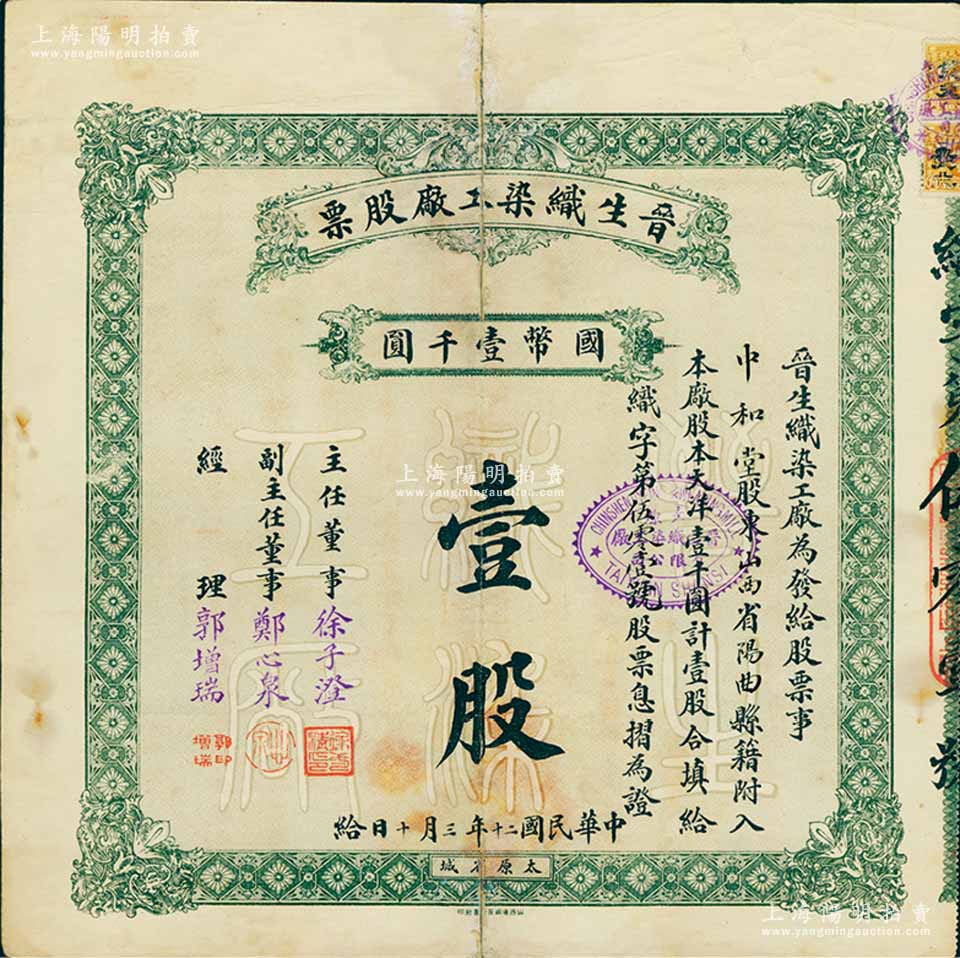 上海陽明拍賣
www.yangmingauction.com
晉生織染工廠股票
國幣壹千圓
晉生織染工廠為發給股票事
中和堂股東山西省陽曲縣籍附入
本廠股本大洋壹千圓計壹股合填給
織字第伍零壹號股票息摺為證
壹股
主任董事徐子澄
副主任董事鄭心泉
經理郭增瑞
郭增瑞印
中華民國二十年三月十日給
太原省城
上海陽明拍賣
www.yangmingauction.com
晉生織染工廠
TAIYUAN SHANSI
上海陽明拍賣
www.yangmingauction.com